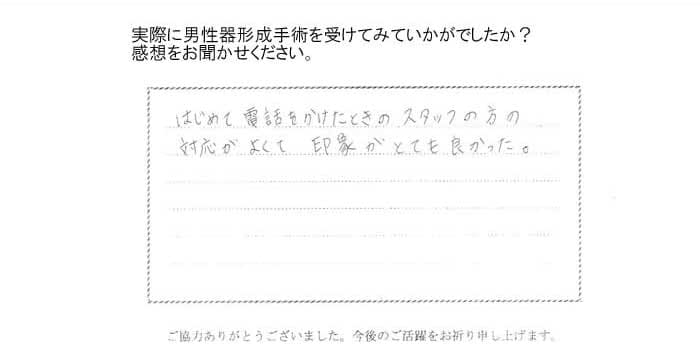 実際に男性器形成手術を受けてみていかがでしたか？
感想をお聞かせください。
はじめて電話をかけたときのスタッフの方の
対応がよくて 印象がとても良かった。
ご協力ありがとうございました。今後のご活躍をお祈り申し上げます。